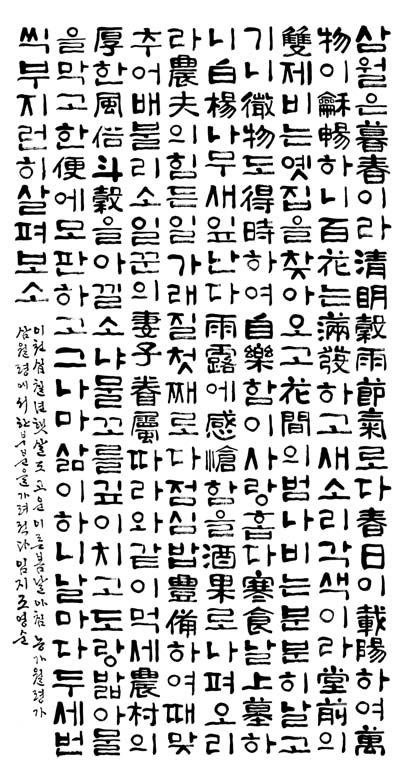 삼월은暮春이라淸明穀雨節氣로다春日이載陽하여萬
物이龢暢하니百花는滿發하고새소리각색이라堂前의
雙제비는옛집을찾아오고花間의범나비는분분히날고
기니微物도得時하여自樂함이사랑흡다寒食날上墓하
니白楊나무새잎난다雨露에感愴함을酒果로나펴오리
라農夫의힘든일가래질첫째로다점심밥豊備하여때맞
추어배불리소일꾼의妻子眷屬따라와같이먹세農村의
厚한風俗斗穀을아낄소냐물꼬를깊이치고도랑밟아물
을막고한便에모판하고그나마삶이하니날마다두세번
씩부지런히살펴보소
햇살도고운이른봄날아침농가월령가
삼월령에서한부분을가려적다임지조영순